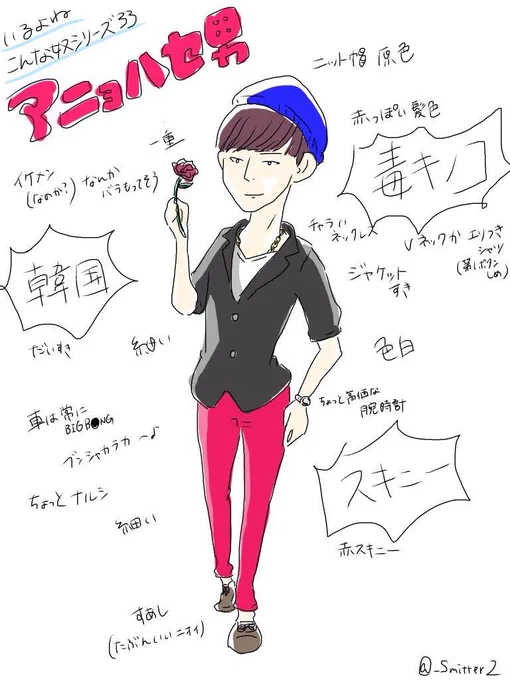 いるよね
こんな奴シリーズ33
アニョハセ男
ニット帽 原色
赤っぽい髪色
毒キノコ
一重
イケメン
(なのか?)
なんか
バラもってそう
チャラい
ネックレス
Vネックか
エリつき
シャツ
(第1ボタン
しめ)
韓国
だいすき
ジャケット
すき
細い
色白
車は常に
BIGB●NG
ブンシャカラカ〜♪
ちょっと高価な
腕時計
スキニー
赤スキニー
ちょっとナルシ
細い
すあし
(たぶんいいニオイ)
@_Smitter2